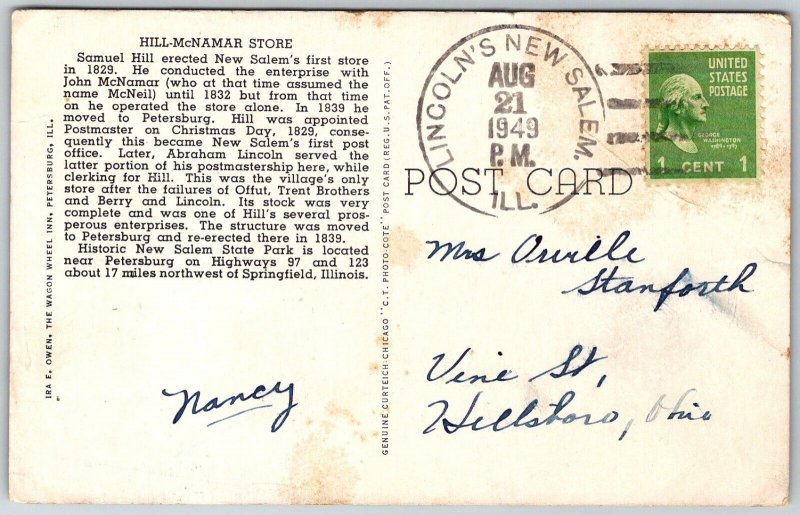 HILL-McNAMAR STORE
Samuel Hill erected New Salem's first store
in 1829. He conducted the enterprise with
John McNamar (who at that time assumed the
name McNeil) until 1832 but from that time
on he operated the store alone. In 1839 he
moved to Petersburg. Hill was appointed
Postmaster on Christmas Day, 1829, conse-
quently this became New Salem's first post
office. Later, Abraham Lincoln served the
latter portion of his postmastership here, while
clerking for Hill. This was the village's only
store after the failures of Offut, Trent Brothers
and Berry and Lincoln. Its stock was very
complete and was one of Hill's several pros-
perous enterprises. The structure was moved
to Petersburg and re-erected there in 1839.
Historic New Salem State Park is located
near Petersburg on Highways 97 and 123
about 17 miles northwest of Springfield, Illinois.
IRA E. OWEN, THE WAGON WHEEL INN, PETERSBURG, ILL.
Nancy
GENUINE CURTEICH-CHICAGO "C.T. PHOTO-COTE" POST CARD (REG. U.S. PAT. OFF.)
LINCOLN'S NEW SALEM,
AUG
21
1949
P.M.
ILL.
UNITED
STATES
POSTAGE
GEORGE
WASHINGTON
1789-1797
1 CENT 1
POST CARD
Mrs Orville
Stanforth
Vine St,
Hillsboro, Ohio